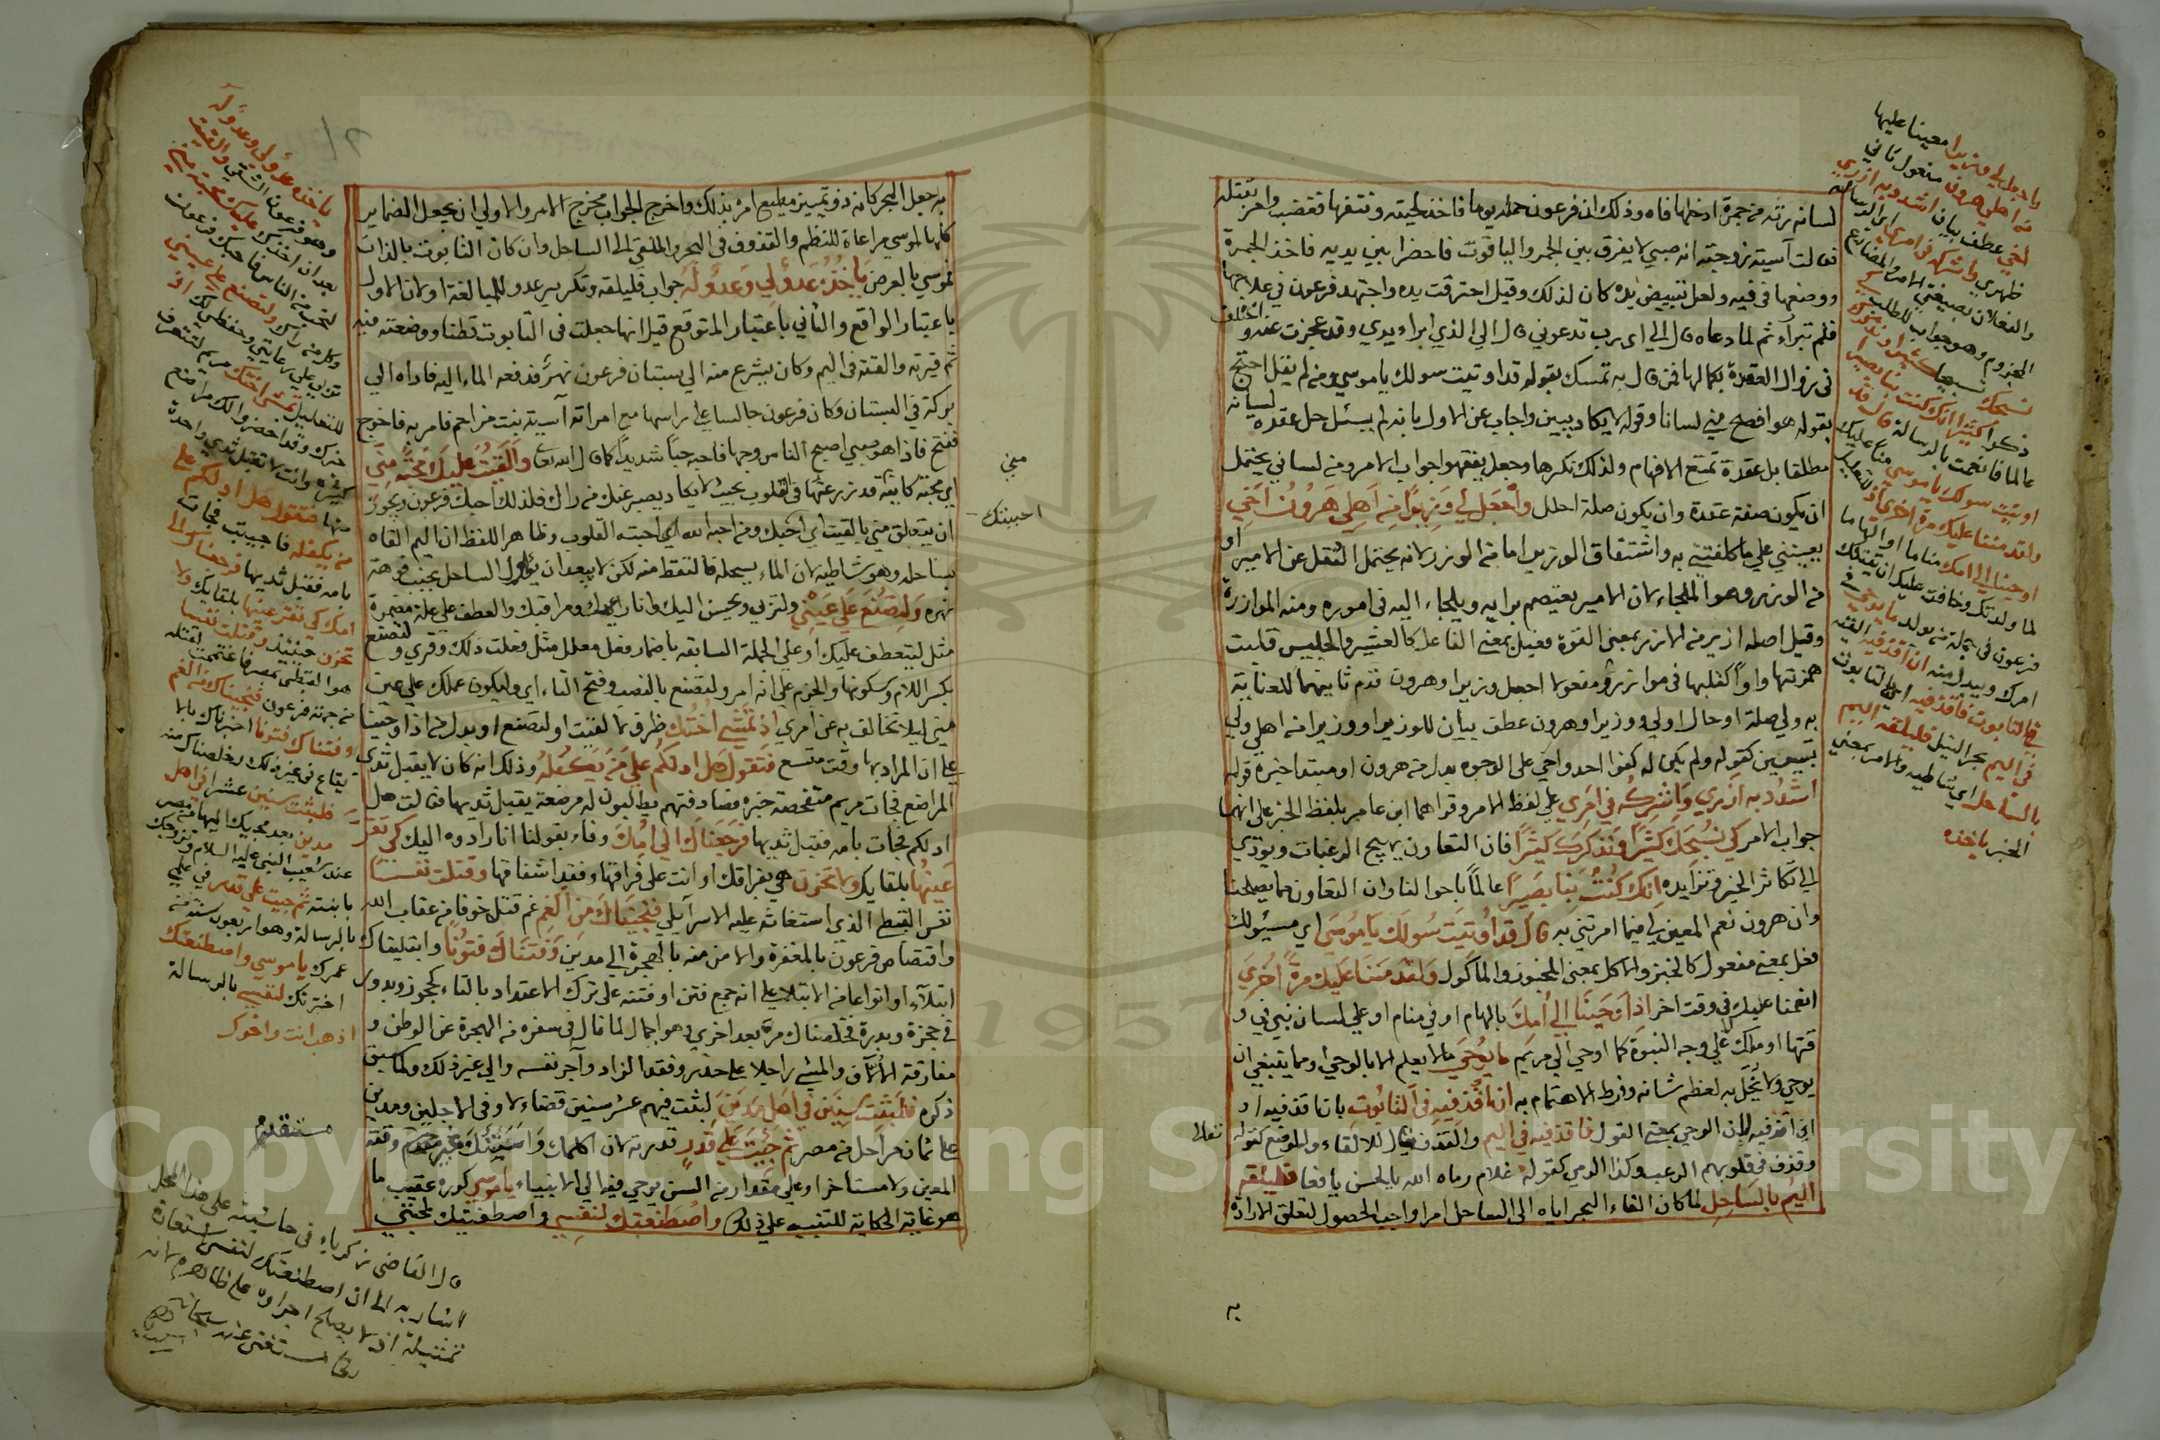 لسانه رتة من جمرة ادخلها فاه وذلك ان فرعون حمله يوما فاخذ لحيته ونتفها فغضب وامر بقتله
فقالت آسية زوجته انه صبي لا يفرق بين الجمر والياقوت فاحضرا بين يديه فاخذ الجمرة
ووضعها في فيه ولعل تبييض يده كان لذلك وقيل احترقت يده واجتهد فرعون في علاجها
فلم تبرأ ثم لما دعاه قال الى اي رب تدعوني قال الي الذي ابراء يدي وقد عجزت عنه واختلف
في زوال العقدة بكمالها فمن قال به تمسك بقوله قد اوتيت سولك ياموسي ومن لم يقل احتج
بقوله هو افصح مني لسانا وقوله لا يكاد يبين واجاب عن الاول بانه لم يسئل حل عقدة لسانه
مطلقا بل عقدة تمنع الافهام ولذلك نكرها وجعل يفقهوا جواب الامر ومن لساني يحتمل
ان يكون صفة عقدة وان يكون صلة احلل واجعل لي وزيرا من اهلي هرون اخي
يعينني علي ما كلفتني به واشتقاق الوزير اما من الوزر لانه يحتمل الثقل عن الامير او
من الوزر وهو الملجاء لان الامير يعتصم برايه ويلجاء اليه في اموره ومنه الموازرة
وقيل اصله ازير من الازر بمعني القوة فعيل بمعني الفاعل كالعشير والجليس قلبت
همزتها واوا كقلبها في موازر ومفعولا اجعل وزيرا وهرون قدم ثانيهما للعناية
به ولي صلة او حال او لي ووزيرا وهرون عطف بيان للوزير او وزيرا من اهلي ولي
تبيين كقوله ولم يكن له كفوا احد واخي على الوجوه بدل من هرون او مبتدا خبره قوله
اشدد به ازري واشركه في امري علي لفظ الامر وقراهما ابن عامر بلفظ الخبر على انهما
جواب الامر كي نسبحك كثيرا ونذكرك كثيرا فان التعاون يهيج الرغبات ويؤدي
الي تكاثر الخير وتزايده انك كنت بنا بصيرا عالما باحوالنا وان التعاون مما يصلحنا
وان هرون نعم المعين لي فيما امرتني به قال قد اوتيت سولك ياموسي اي مسئولك
فعل بمعني مفعول كالخبز والاكل بمعني المخبوز والماكول ولقد مننا عليك مرة اخري
انعمنا عليك في وقت اخر اذ اوحينا الي امك بالهام او في منام او علي لسان نبي في
وقتها او ملك علي وجه النبوة كما اوحي الي مريم ما يوحي مالا يعلم الا بالوحي او مما ينبغي ان
يوحي ولا يخل به لعظم شانه وفرط الاهتمام به ان اقذفيه في التابوت بان اقذفيه او
اي اقذفيه لان الوحي بمعني القول فاقذفيه في اليم والقذف يقال للالقاء وللوضع كقوله تعالى
وقذف في قلوبهم الرعب وكذا الرمي كقوله غلام رماه الله بالحسن يافعا فليلقه
اليم بالساحل لما كان القاء البحر اياه الى الساحل امرا واجب الحصول لتعلق الارادة
به
واجعل لي وزيرا معينا عليها
من اهلي هرون مفعول ثاني
اخي عطف بيان اشدد به ازري
ظهري واشركه في امري اي الرسالة
والفعلان بصيغتي الامر والمضارع
المجزوم وهو جواب للطلب كي
نسبحك تسبيحا كثيرا ونذكرك
ذكرا كثيرا انك كنت بنا بصيرا
عالما فانعمت بالرسالة قال قد
اوتيت سولك ياموسي منا عليك
ولقد مننا عليك مرة اخري اذ للتعليل
اوحينا الي امك مناما او الهاما
لما ولدتك وخافت عليك ان يقتلك
فرعون في جملة من يولد ما يوحي في
امرك ويبدل منه ان اقذفيه القيه
في التابوت فاقذفيه اي بالتابوت
في اليم بحر النيل فليلقه اليم
بالساحل اي شاطيه والامر بمعني
الخبر ياخذه
به جعل البحر كانه ذو تمييز مطيع امره بذلك واخرج الجواب مخرج الامر والاولي ان يجعل الضماير
كلها لموسي مراعاة للنظم والمقذوف في البحر والملقي الى الساحل وان كان التابوت بالذات
فموسي بالعرض ياخذه عدو لي وعدو له جواب فليلقه وتكرير عدو للمبالغة او لان الاول
باعتبار الواقع والثاني باعتبار المتوقع قيل انها جعلت في التابوت قطنا ووضعته فيه
ثم قيرته والقته في اليم وكان يشرع منه الي بستان فرعون نهر فدفعه الماء اليه فاداه الي
بركة في البستان وكان فرعون جالسا علي راسها مع امراته آسية بنت مزاحم فامر به فاخرج
ففتح فاذا هو صبي اصبح الناس وجها فاحبه حبا شديدا كما قال الله تعالى والقيت عليك محبة مني
اي محبة كاينة قد زرعتها في القلوب بحيث لا يكاد يصبر عنك من راك فلذلك احبك فرعون ويجوز
ان يتعلق مني بالقيت اي احبك ومن احبه الله اي احبته القلوب وظاهر اللفظ ان اليم القاه
بساحله وهو شاطيه لان الماء يسحله فالتقط منه لكن لا يبعد ان يؤول الساحل بجنب فوهة
نهره ولتصنع علي عيني ولتربي ويحسن اليك وانا راعيك ومراقبك والعطف علي علة مضمرة
مثل ليتعطف عليك او على الجملة السابقة باضمار فعل معلل مثل فعلت ذلك وقري ولتصنع
بكسر اللام وسكونها والجزم على انه امر ولتصنع بالنصب وفتح التاء اي وليكون عملك علي عين
مني ليلا تخالف به عن امري اذ تمشي اختك ظرف لالقيت او لتصنع او بدل من اذ اوحينا
علي ان المراد بها وقت متسع فتقول هل ادلكم علي من يكفله وذلك انه كان لا يقبل ثدي
المراضع فجات مريم متفحصة خبره فصادفتهم يطلبون له مرضعة يقبل ثديها فقالت هل
ادلكم فجات بامه فقبل ثديها فرجعناك الي امك وفاء بقولنا انا رادوه اليك كي تقر
عينها بلقايك ولا تحزن هي بفراقك او انت على فراقها وفقد اشفاقها وقتلت نفسا
نفس القبطي الذي استغاثه عليه الاسرآيلي فنجيناك من الغم غم قتله خوفا من عقاب الله
واقتصاص فرعون بالمغفرة والامن منه بالهجرة الي مدين وفتناك فتونا وابتليناك
ابتلآء او انواعا من الابتلاء علي انه جمع فتن او فتنه على ترك الاعتداد بالتاء كحجوز وبدور
في حجزة وبدرة فخلصناك مرة بعد اخري وهو اجمال لما نال في سفره من الهجرة عن الوطن و
مفارقة الالاف والمشي راجلا علي حذر وفقد الزاد وآجر نفسه والي غير ذلك ولما سبق
ذكره فلبثت سنين في اهل مدين لبثت فيهم عشر سنين قضاء لاوفي الاجلين ومدين
علي ثمان مراحل من مصر ثم جيت علي قدر قدرته لان اكلمك واستنبئك غير مستقدم وقته
المعين ولا مستاخر او علي مقدار من السن يوحي فيه الي الانبياء ياموسي كرره عقيب ما
هو غاية الحكاية للتنبيه علي ذلك واصطنعتك لنفسي واصطفيتك لمحبتي
مني
احببتك
ياخذه عدو لي وعدو له
وهو فرعون
بعد ان اخذك عليك محبة مني
لتحب من الناس فاحبك فرعون
وكل من راك ولتصنع علي عيني
تربي علي رعايتي وحفظي لك اذ
للتعليل تمشي اختك مريم لتتعرف
خبرك وقد احضروا لك مراضع
كثيرة وانت لا تقبل ثدي واحدة
منها فتقول هل ادلكم علي
من يكفله فاجيبت فجات
بامه فقبل ثديها فرجعناك الي
امك كي تقر عينها بلقايك ولا
تحزن حينيذ وقتلت نفسا
هو القبطي بمصر فاغتممت لقتله
من جهة فرعون فنجيناك من الغم
وفتناك فتونا اختبرناك بالا
يقاع في غير ذلك وخلصناك منه
فلبثت سنين عشرا في اهل
مدين بعد مجيئك اليها من مصر
عند شعيب النبي عليه السلام وتزوجك
بابنته ثم جيت علي قدر في علمي
بالرسالة وهو اربعون سنة من
عمرك ياموسي واصطنعتك
اخترتك لنفسي بالرسالة
اذهب انت واخوك
مستقدم
قال القاضي زكرياء في حاشيته على هذا المحل
اشار به الى ان اصطنعتك لنفسي استعارة
تمثيلية اذ لا يصلح اجراوه على ظاهره لانه